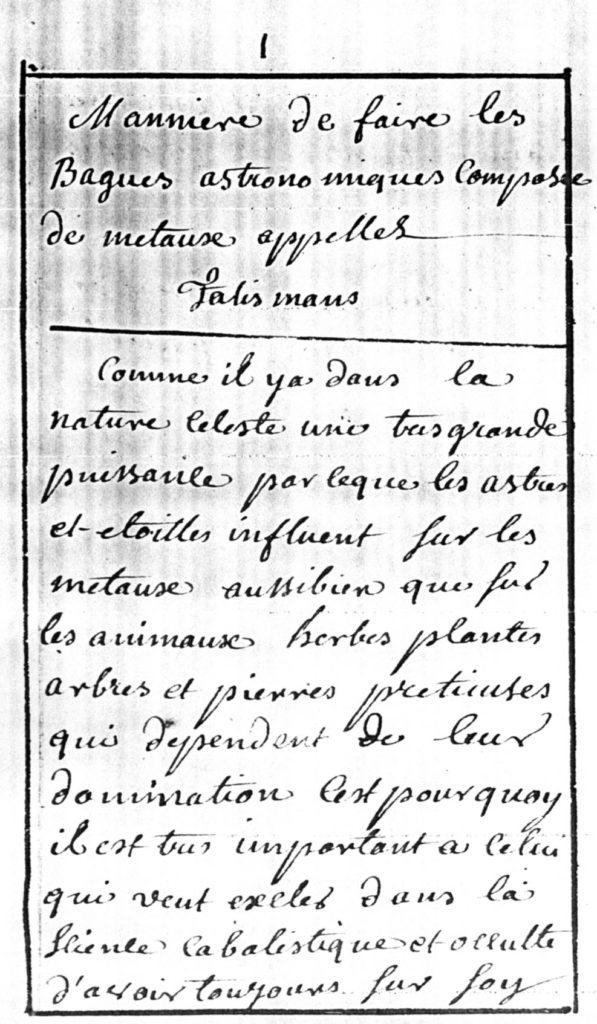 1
Manniere de faire les
Bagues astronomiques Composée
de metause appelles
Talismans
Comme il ya dans la
nature Celeste une tresgrande
puissance par leque les astres
et etoilles influent sur les
metause aussibien que sur
les animause herbes plantes
arbres et pierres pretieuses
qui dependent de leur
domination Cest pourquoy
il est tres important a Celui
qui veut exeller dans la
science Cabalistique et occulte
d'avoir toujours sur soy